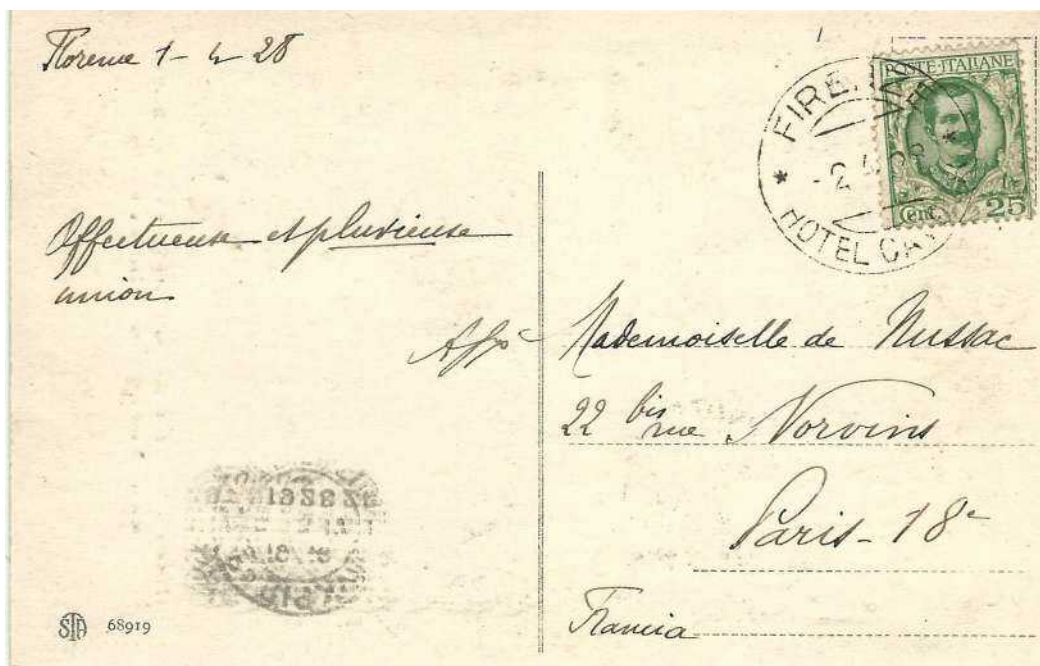 Florence 1-4 28
Affectueuse et pluvieuse
union
Mademoiselle de Nussac
22 bis rue Norvins
Paris-18e
Francia
POSTE·ITALIANE
Cent. 25
FIRENZE
-2 4 28
HOTEL
1928
STA 68919